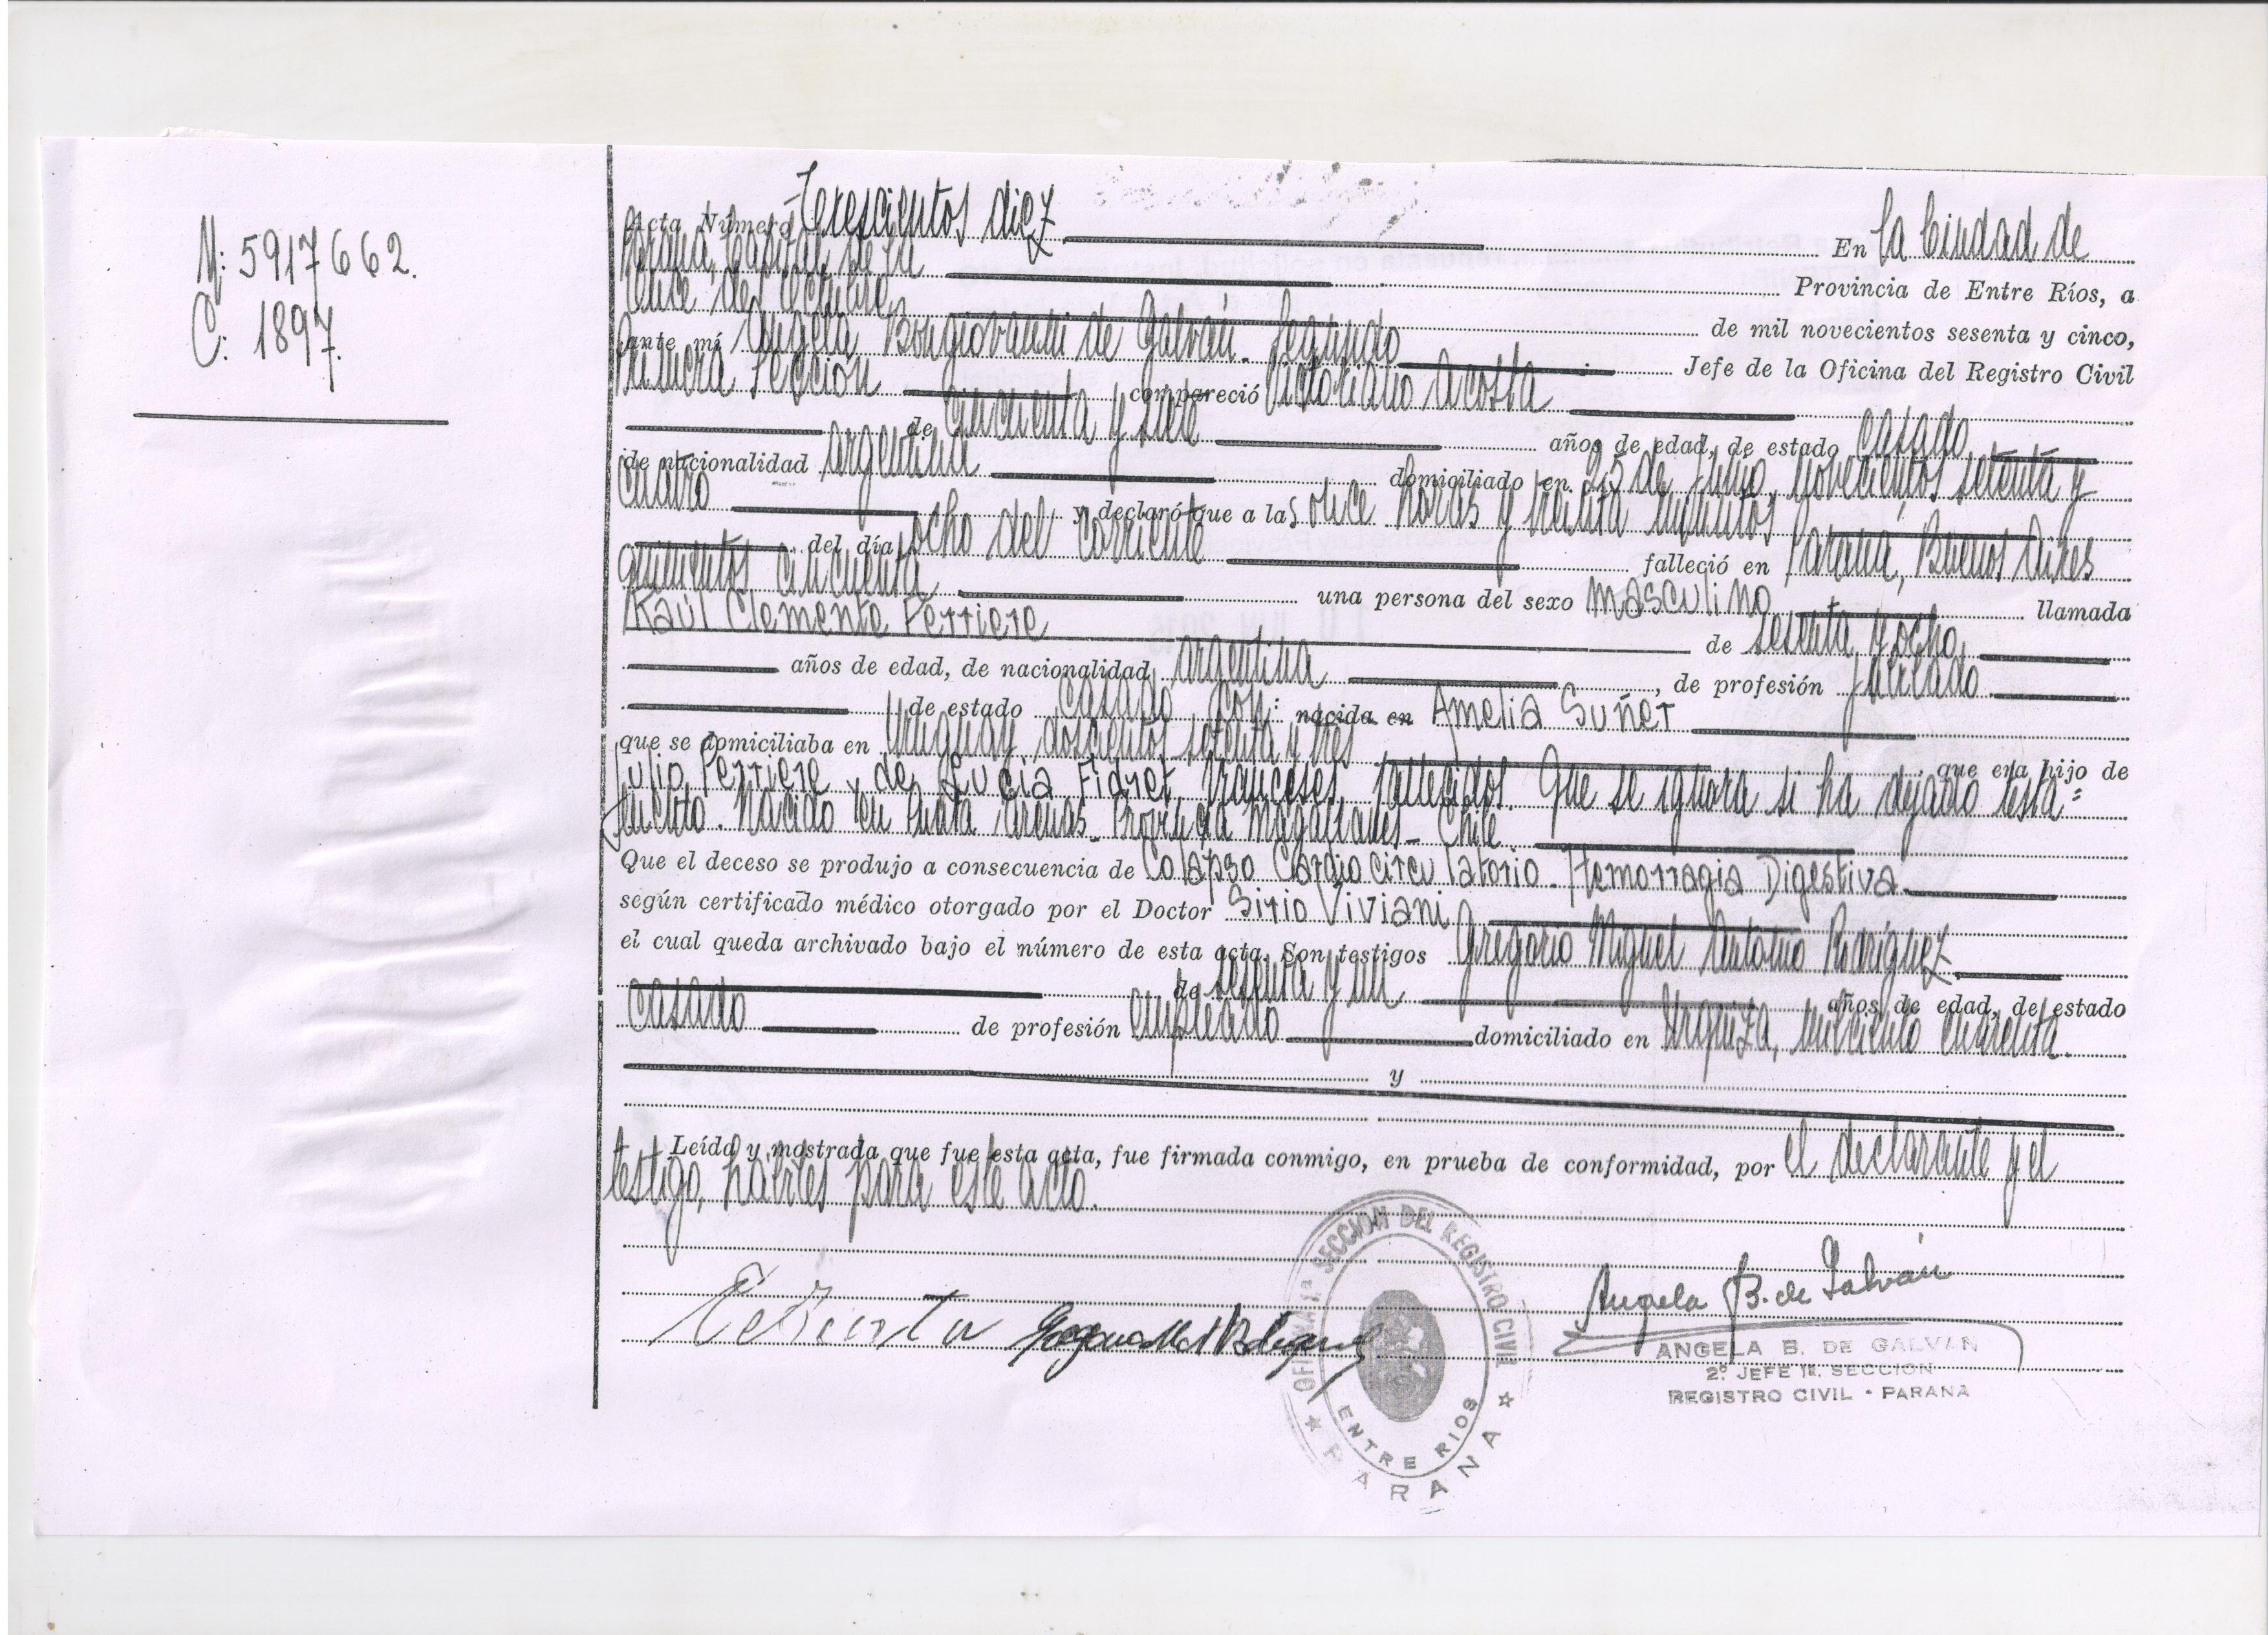 M: 5917662.
C: 1897.
Acta Número Trescientos diez En la Ciudad de
Paraná, Capital de la Provincia de Entre Ríos, a
once de Octubre de mil novecientos sesenta y cinco,
ante mí Angela Bongiovanni de Galván. Segundo Jefe de la Oficina del Registro Civil
Primera Sección compareció Victoriano Acosta
de cincuenta y siete años de edad, de estado casado,
de nacionalidad argentina domiciliado en 25 de Junio, novecientos setenta y
cuatro y declaró que a las once horas y treinta minutos
del día ocho del corriente falleció en Paraná, Buenos Aires
quinientos cincuenta una persona del sexo masculino llamada
Raúl Clemente Perriere de sesenta y ocho,
años de edad, de nacionalidad argentina, de profesión jubilado
de estado casado con: nacida en Amelia Suñer
que se domiciliaba en Uruguay, doscientos setenta y tres que era hijo de
Julio Perriere y de Lucía Fidret, franceses, fallecidos. Que se ignora si ha dejado testa=
mento. Nacido en Punta Arenas - Provincia Magallanes - Chile
Que el deceso se produjo a consecuencia de Colapso Cardiocirculatorio - Hemorragia Digestiva.
según certificado médico otorgado por el Doctor Sirio Viviani
el cual queda archivado bajo el número de esta acta. Son testigos Gregorio Miguel Antonio Rodríguez
de sesenta y un años de edad, de estado
casado de profesión empleado domiciliado en Urquiza, mil ciento cuarenta.
y
Leída y mostrada que fue esta acta, fue firmada conmigo, en prueba de conformidad, por el declarante y el
testigo, hábiles para este acto.
Angela B. de Galván
OFICINA 1ª SECCION DEL REGISTRO CIVIL
ENTRE RIOS
★ PARANA ★
ANGELA B. DE GALVAN
2º JEFE 1ª. SECCION
REGISTRO CIVIL - PARANA